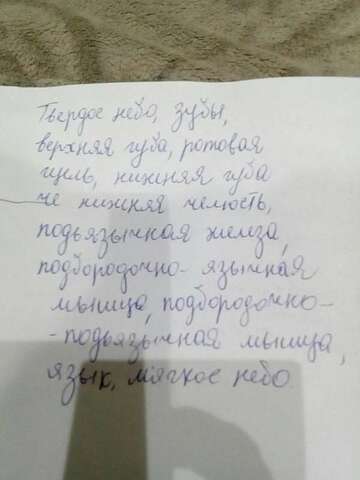 Твердое небо, зубы,
верхняя губа, ротовая
щель, нижняя губа
че нижняя челюсть,
подъязычная железа,
подбородочно-язычная
мышца, подбородочно-
-подъязычная мышца,
язык, мягкое небо.